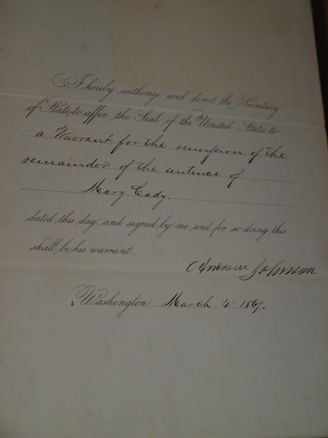 I hereby authorize and direct the Secretary
of State to affix the Seal of the United States to
a Warrant for the remission of the
remainder of the sentence of
Mary Cady.
dated this day, and signed by me, and for so doing this
shall be his warrant.
Andrew Johnson
Washington March 4 1867.